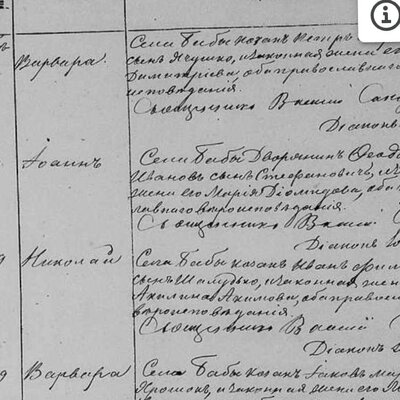 Варвара.
Села Бабы козакъ Петръ
сынъ Ячушко, и законная жена его
Димитріева, оба православнаго
исповѣданія.
Священникъ Василій
Діаконъ
Іоаннъ
Села Бабы Дворянинъ Ѳеодо
Ивановъ сынъ Стефановичъ, и
жена его Марія Діомидова, оба
славнаго вѣроисповѣданія.
Священникъ Василій
Діаконъ
Николай
Села Бабы козакъ Иванъ Фили
сынъ и законная жен
Акилина Акимова, оба правос
вѣроисповѣданія
Священникъ Василій
Діаконъ
Варвара
Села Бабы козакъ Іаковъ
Ярошокъ, и законная жена его М